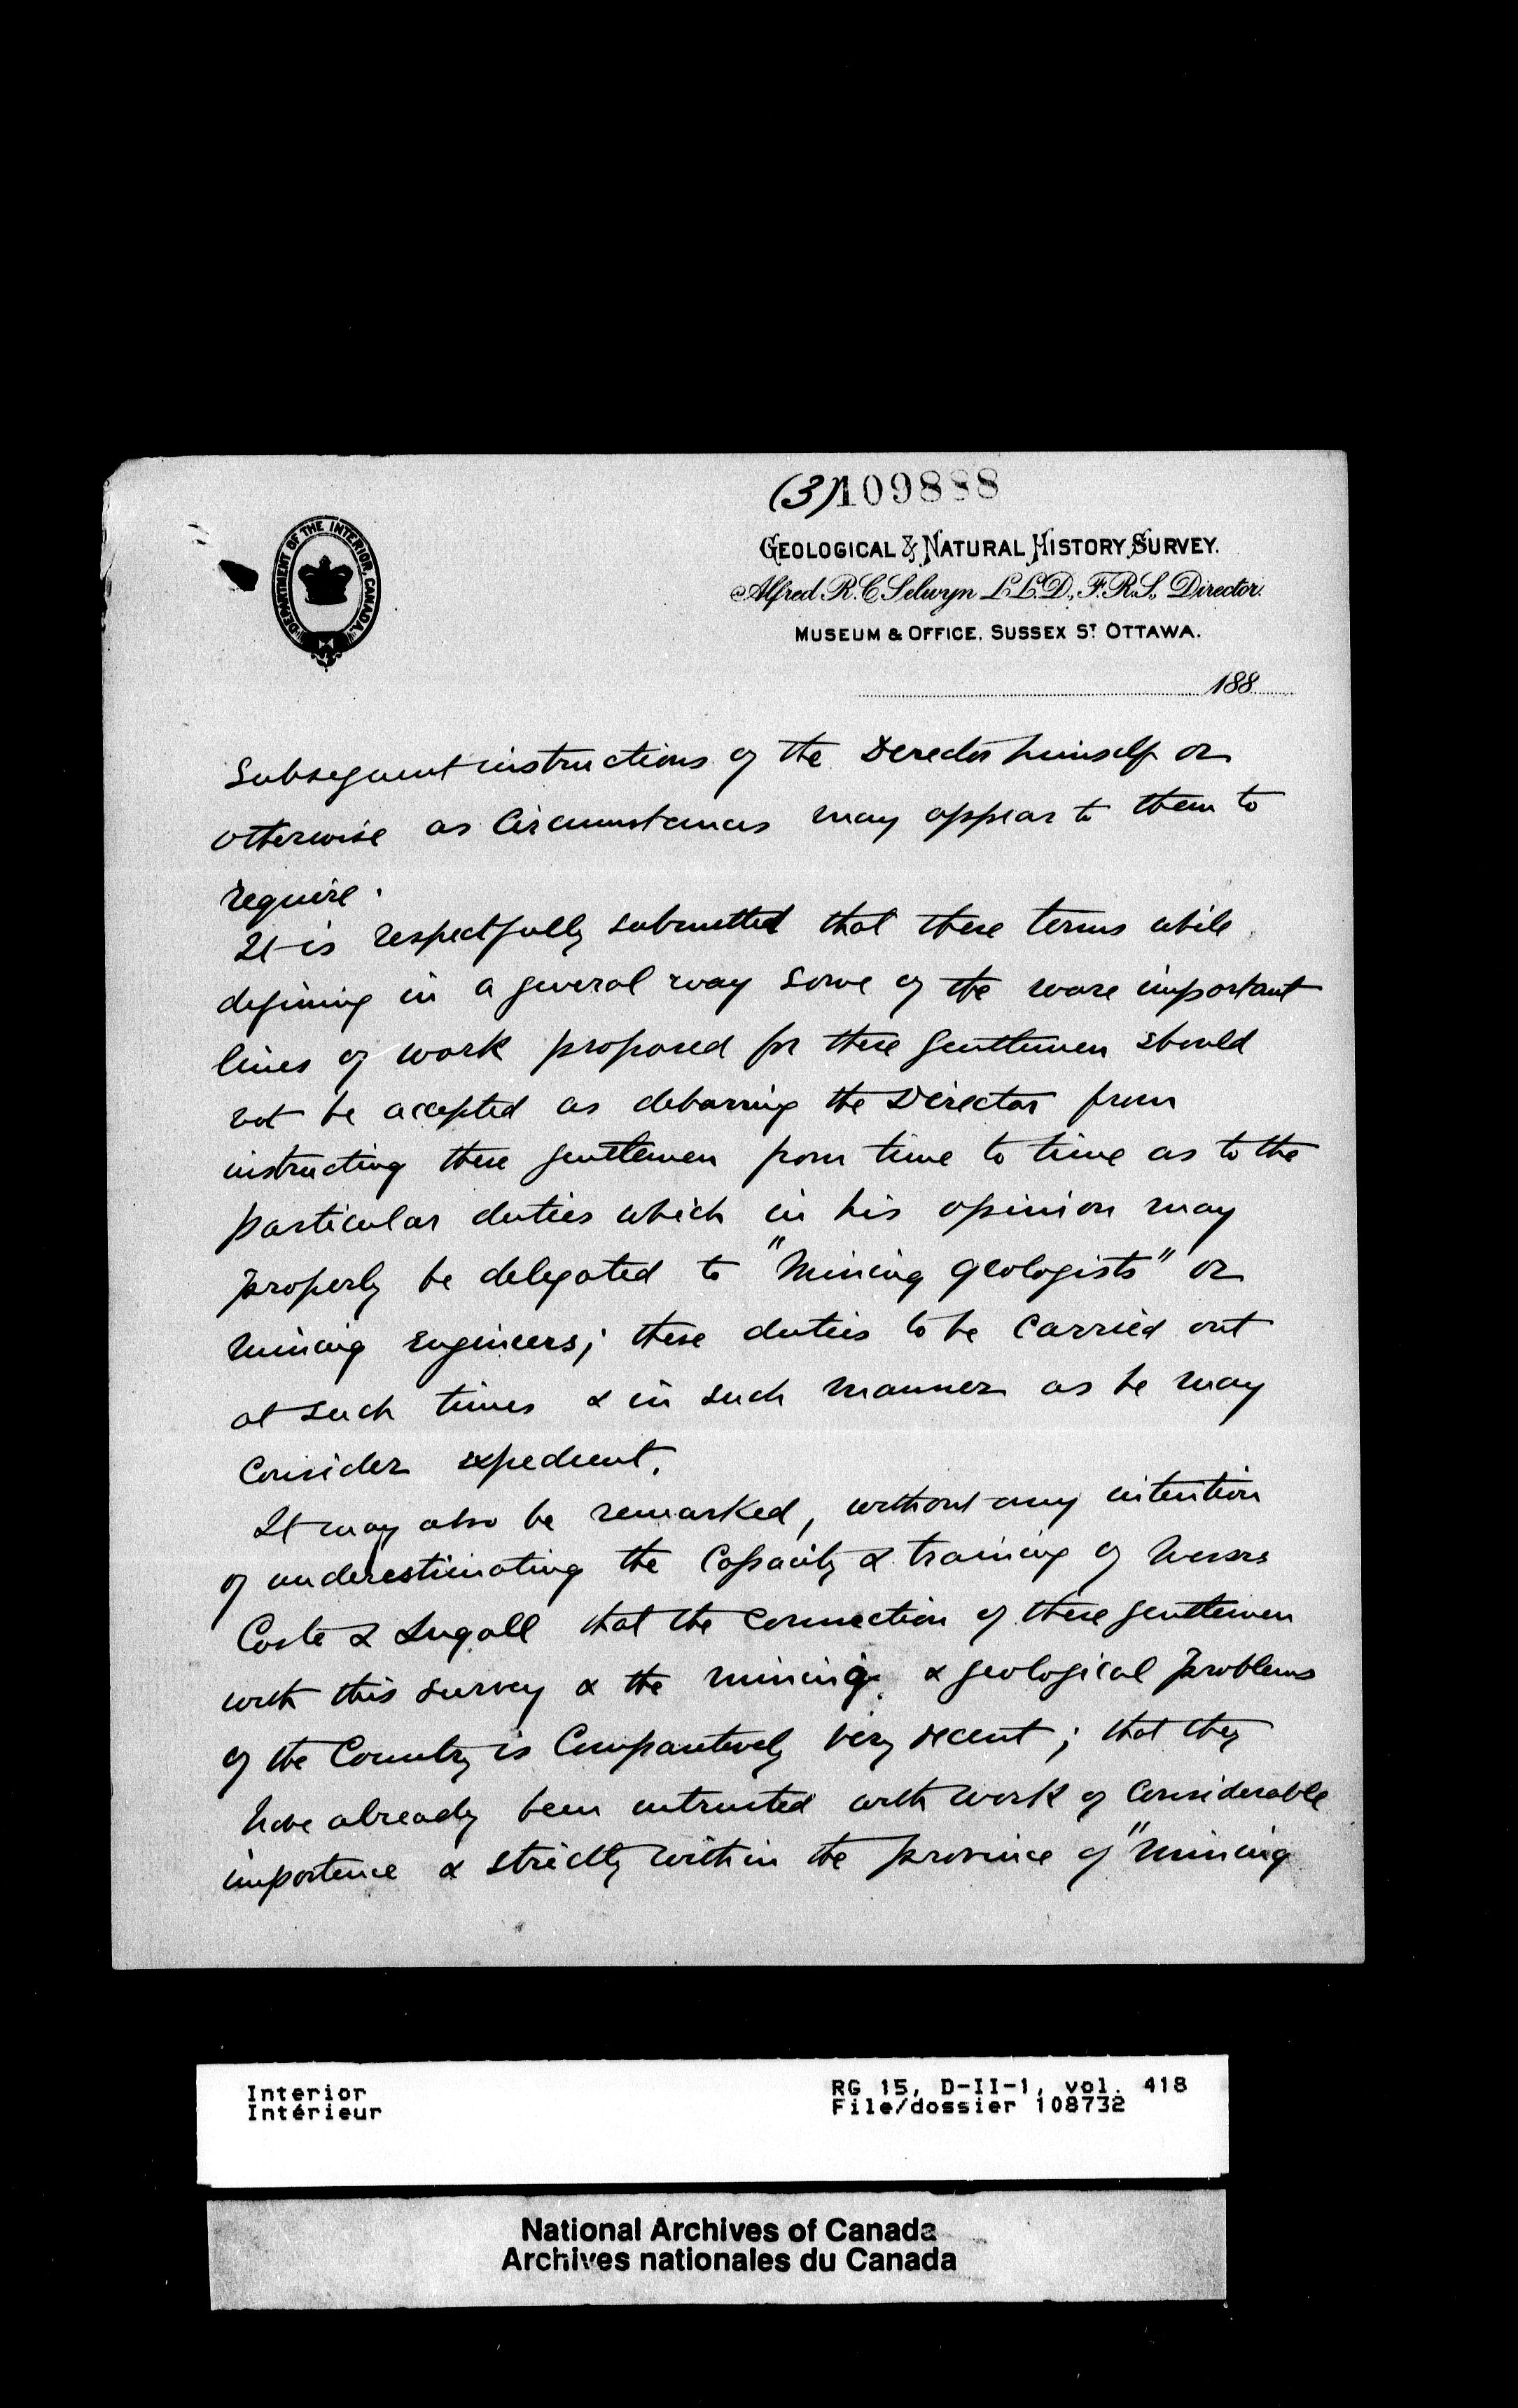 (3) 109888
DEPARTMENT OF THE INTERIOR, CANADA.
GEOLOGICAL & NATURAL HISTORY SURVEY.
Alfred R. C. Selwyn LL.D., F.R.S., Director.
MUSEUM & OFFICE, SUSSEX ST OTTAWA.
188
Subsequent instructions of the Director himself or
otherwise as Circumstances may appear to them to
require.
It is respectfully submitted that these terms while
defining in a general way some of the more important
lines of work proposed for these gentlemen should
not be accepted as debarring the Director from
instructing these gentlemen from time to time as to the
particular duties which in his opinion may
properly be delegated to "Mining geologists" or
Mining Engineers; these duties to be carried out
at such times & in such manner as he may
Consider expedient.
It may also be remarked, without any intention
of underestimating the Capacity & training of Messrs
Coste & Ingall that the Connection of these gentlemen
with this survey & the mining & geological problems
of the Country is Comparatively very recent; that they
have already been entrusted with work of Considerable
importance & strictly within the province of "Mining
Interior
Intérieur
RG 15, D-II-1, vol. 418
File/dossier 108732
National Archives of Canada
Archives nationales du Canada